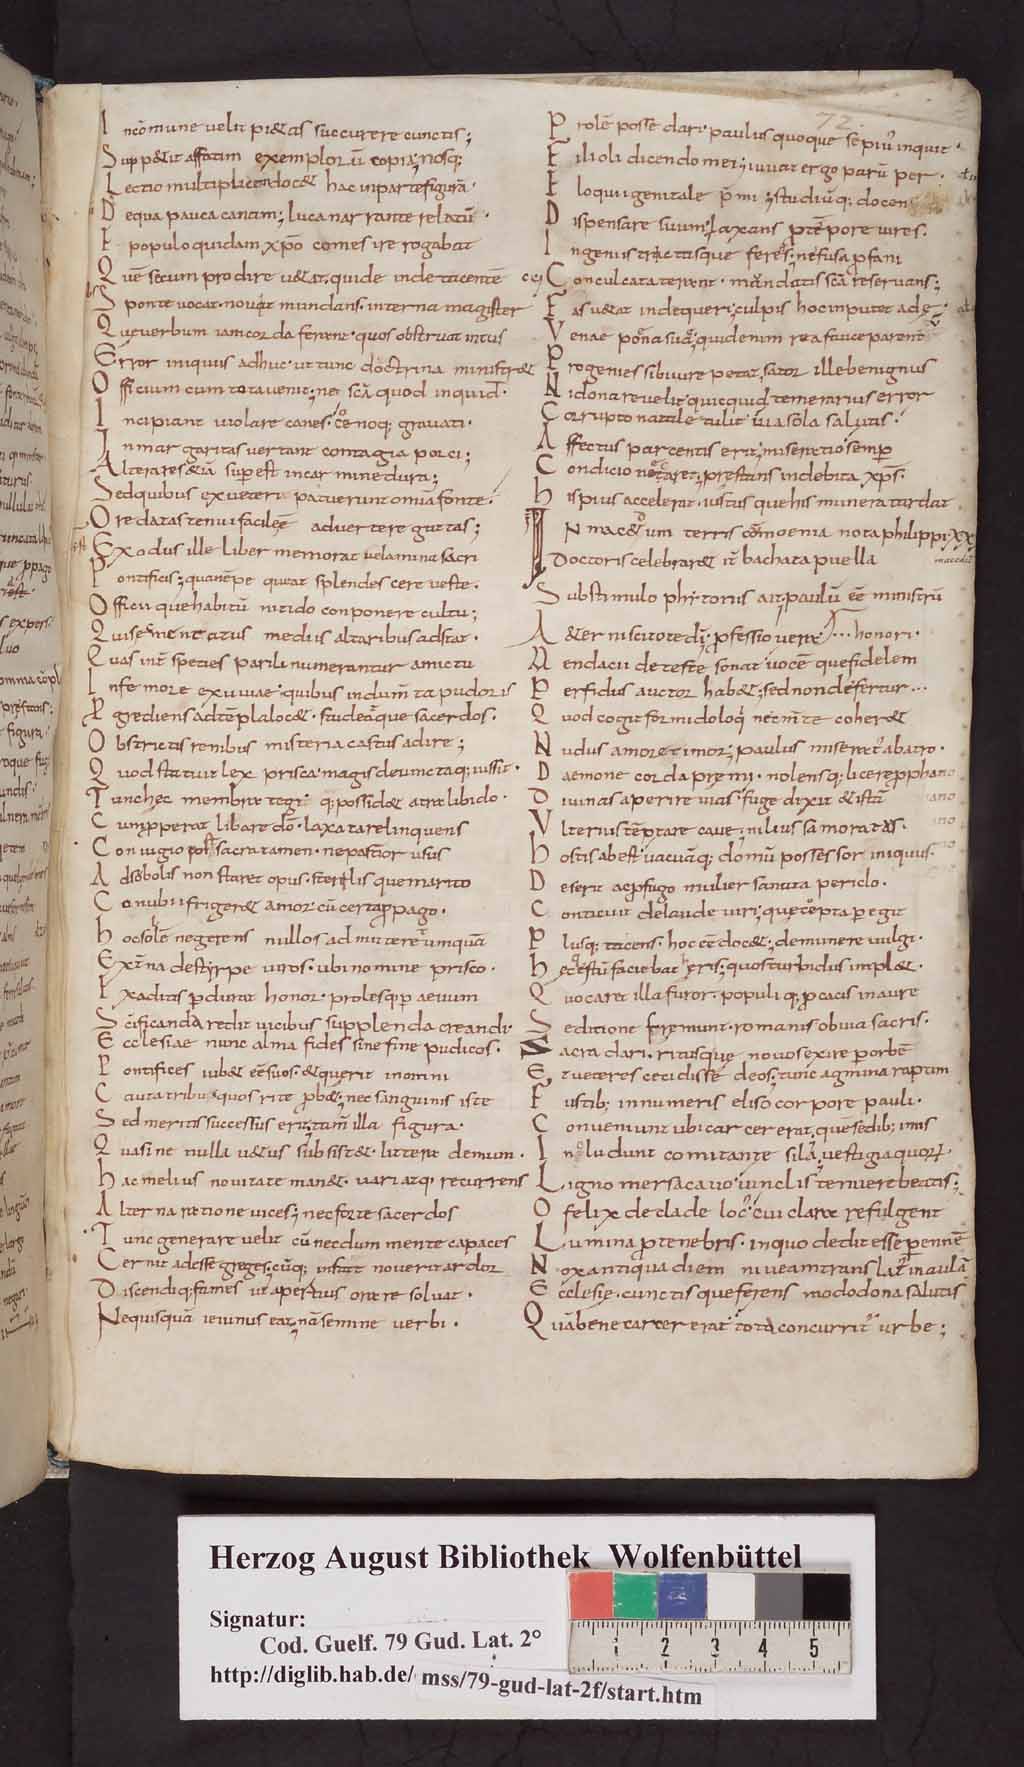 72
In cōmune velit pi&as succurere cunctis;
Supp&it affatim exemplorū copia; nosq;
Lectio multiplacen doc& hac inparte figurā.
Dequa pauca canam; luca narrante relatū.
E populo quidam xpō comes ire rogabat
Quē secum prodire u&at, quide inde tacentē
Sponte vocat. novit mundans interna magister
Que verbum iam corda ferant. quos obstruat intus
Error iniquus adhuc. ut tunc doctrina ministr&
Officium cum tota venit; nec scā quod inquid.
Incipiant violare canes. cenoq; gravati.
In margaritas vertant contagia porci;
Altera res &iā superest in carmine dura;
Sed quibus ex veteri patuerunt omnia fonte.
Ore datas tenui facile ē advertere guttas;
Exodus ille liber memorat velamina sacri
Pontificis; quanēpe queat splendescere veste.
Officii que habitū nitido conponere cultu;
Quise mentitus medius altaribus adstat.
Quas int species parili numerantur amictu
Infe more exuviae. quibus indum ta pudoris
Pgrediens ad tēpla loc&. studeatque sacerdos.
Obstrictis renibus misteria castus adire;
Quod statuit lex prisca. magis devinctaq; iussit.
Tunc hec membra tegi q; possid& atra libido.
Cumpperat libare dō. laxata relinquens
Coniugio post sacra tamen. nepastior usus
Ad sobolis non staret opus. sterilis que marito
Conubii friger& amor. cū certa ppago.
hoc sole negetens nullos admittere umquā
Externa destyrpe viros. ubi nomine prisco.
Exaditis pdurat honor. prolesq; p aevum
Scificanda redit vicibus supplenda creandi.
Ecclesiae nunc alma fides sine fine pudicos.
Pontifices iub& eē suos. & querit in omni
Cauta tribu. quos rite prob&; nec sanguinis iste
Sed meritis successus erit; tam illa figura.
Quasi ne nulla u&us subsist&. littera demum.
hac melius novitate man&. variatq; recurrens
Alterna ratione vices; nec forte sacerdos
Tunc generare velit cū necdum mente capaces
Cernit adesse greges; cūq; instat noverit ardor
Discendiq; fames ut apertius orare soluat.
Nequisquā ieiunus eat; nā semine verbi.
Prolē posse dari. paulus quoque sepiu inquit.
Filioli dicendo mei; iuvat ergo parū per.
Eloqui igenitale pmi; studiūq; docen
Dispensare suum. laxans ptēpore vires.
Ingeniis tractusque feres; nefusa pfani
Conculcata terant. mandatis scā reservans;
Fas u&at inde queri; culpis hoc imputet a de
Venae pona suā; quidenim rea fauce parent
Progenies sibi iure petat; sator ille benignus
Ni dona revelit. quicquid temerarius error
Corrupto natale tulit. via sola salutis.
Affectus parcentis erit; miseratio semp
Condicio necaret; prestans indebita xps.
his pius accelerat. iustus que his munera tardat
IN mac&um terris cā moenia nota philippi. XX
Doctoris celebrar& it bachata puella
Sub stimulo phytonis ait; paulū eē ministrū
A&erni scitote di; professio vera... honori.
Mendacii deteste sonat. vocē que fidelem
Perfidus auctor hab&; sed non defertur...
Quod cogit formido loq; nec inte coher&
Nudus amore timor; paulus miseratus abatro.
Daemone corda premi. nolensq; licere pphano
Divinas aperire vias. fuge dixit & istā
Ulterius tēptare cave; nilius sa moratus.
hostis abest vacuāq; domū possessor iniquus.
Deserit ac pfugo mulier sanata periclo.
Conticuit delaude viri; que cepta peregit
Plusq; tacens. hoc eē doc&; demunere vulgi.
hec estū faciebat heris; quos turbidus impl&.
Quo caret illa furor. populiq; pcacis in aure
Seditione fremunt. romanis obvia sacris.
Sacra dari. ritusque novos exire porbē
Et veteres cecidisse deos; tunc agmina raptim
Fustib; innumeris eliso corpore pauli.
Conveniunt ubi carcer erat. que sedib; imis
Includunt comitante sila. vestigia quorū.
Ligno mersa cavo. vinclis tenuere beatis;
O felix de clade loc. cui clarae refulgent
Lumina ptenebris. inquo dedit esse perennē
Nox antiqua diem niveam translat in aulā
Ecclesie. cunctis que ferens modo dona salutis
Quā bene carcer erat. tota concurrit urbe;
Herzog August Bibliothek Wolfenbüttel
Signatur:
Cod. Guelf. 79 Gud. Lat. 2°
http://diglib.hab.de/ mss/79-gud-lat-2f/start.htm
1 2 3 4 5